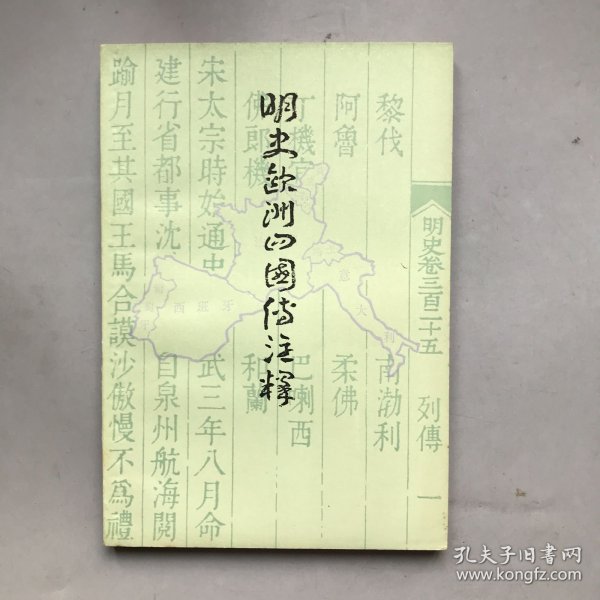 明史欧洲四國傳注釋
明史卷三百二十五
列傳
一
黎伐
南渤利
阿魯
柔佛
丁機宜
巴喇西
佛郎機
和蘭
宋太宗時始通史
武三年八月命
建行省都事沈
自泉州航海閱
踰月至其國王馬合謨沙傲慢不爲禮
西班牙
意大利
孔夫子旧书网
www.kongfz.com